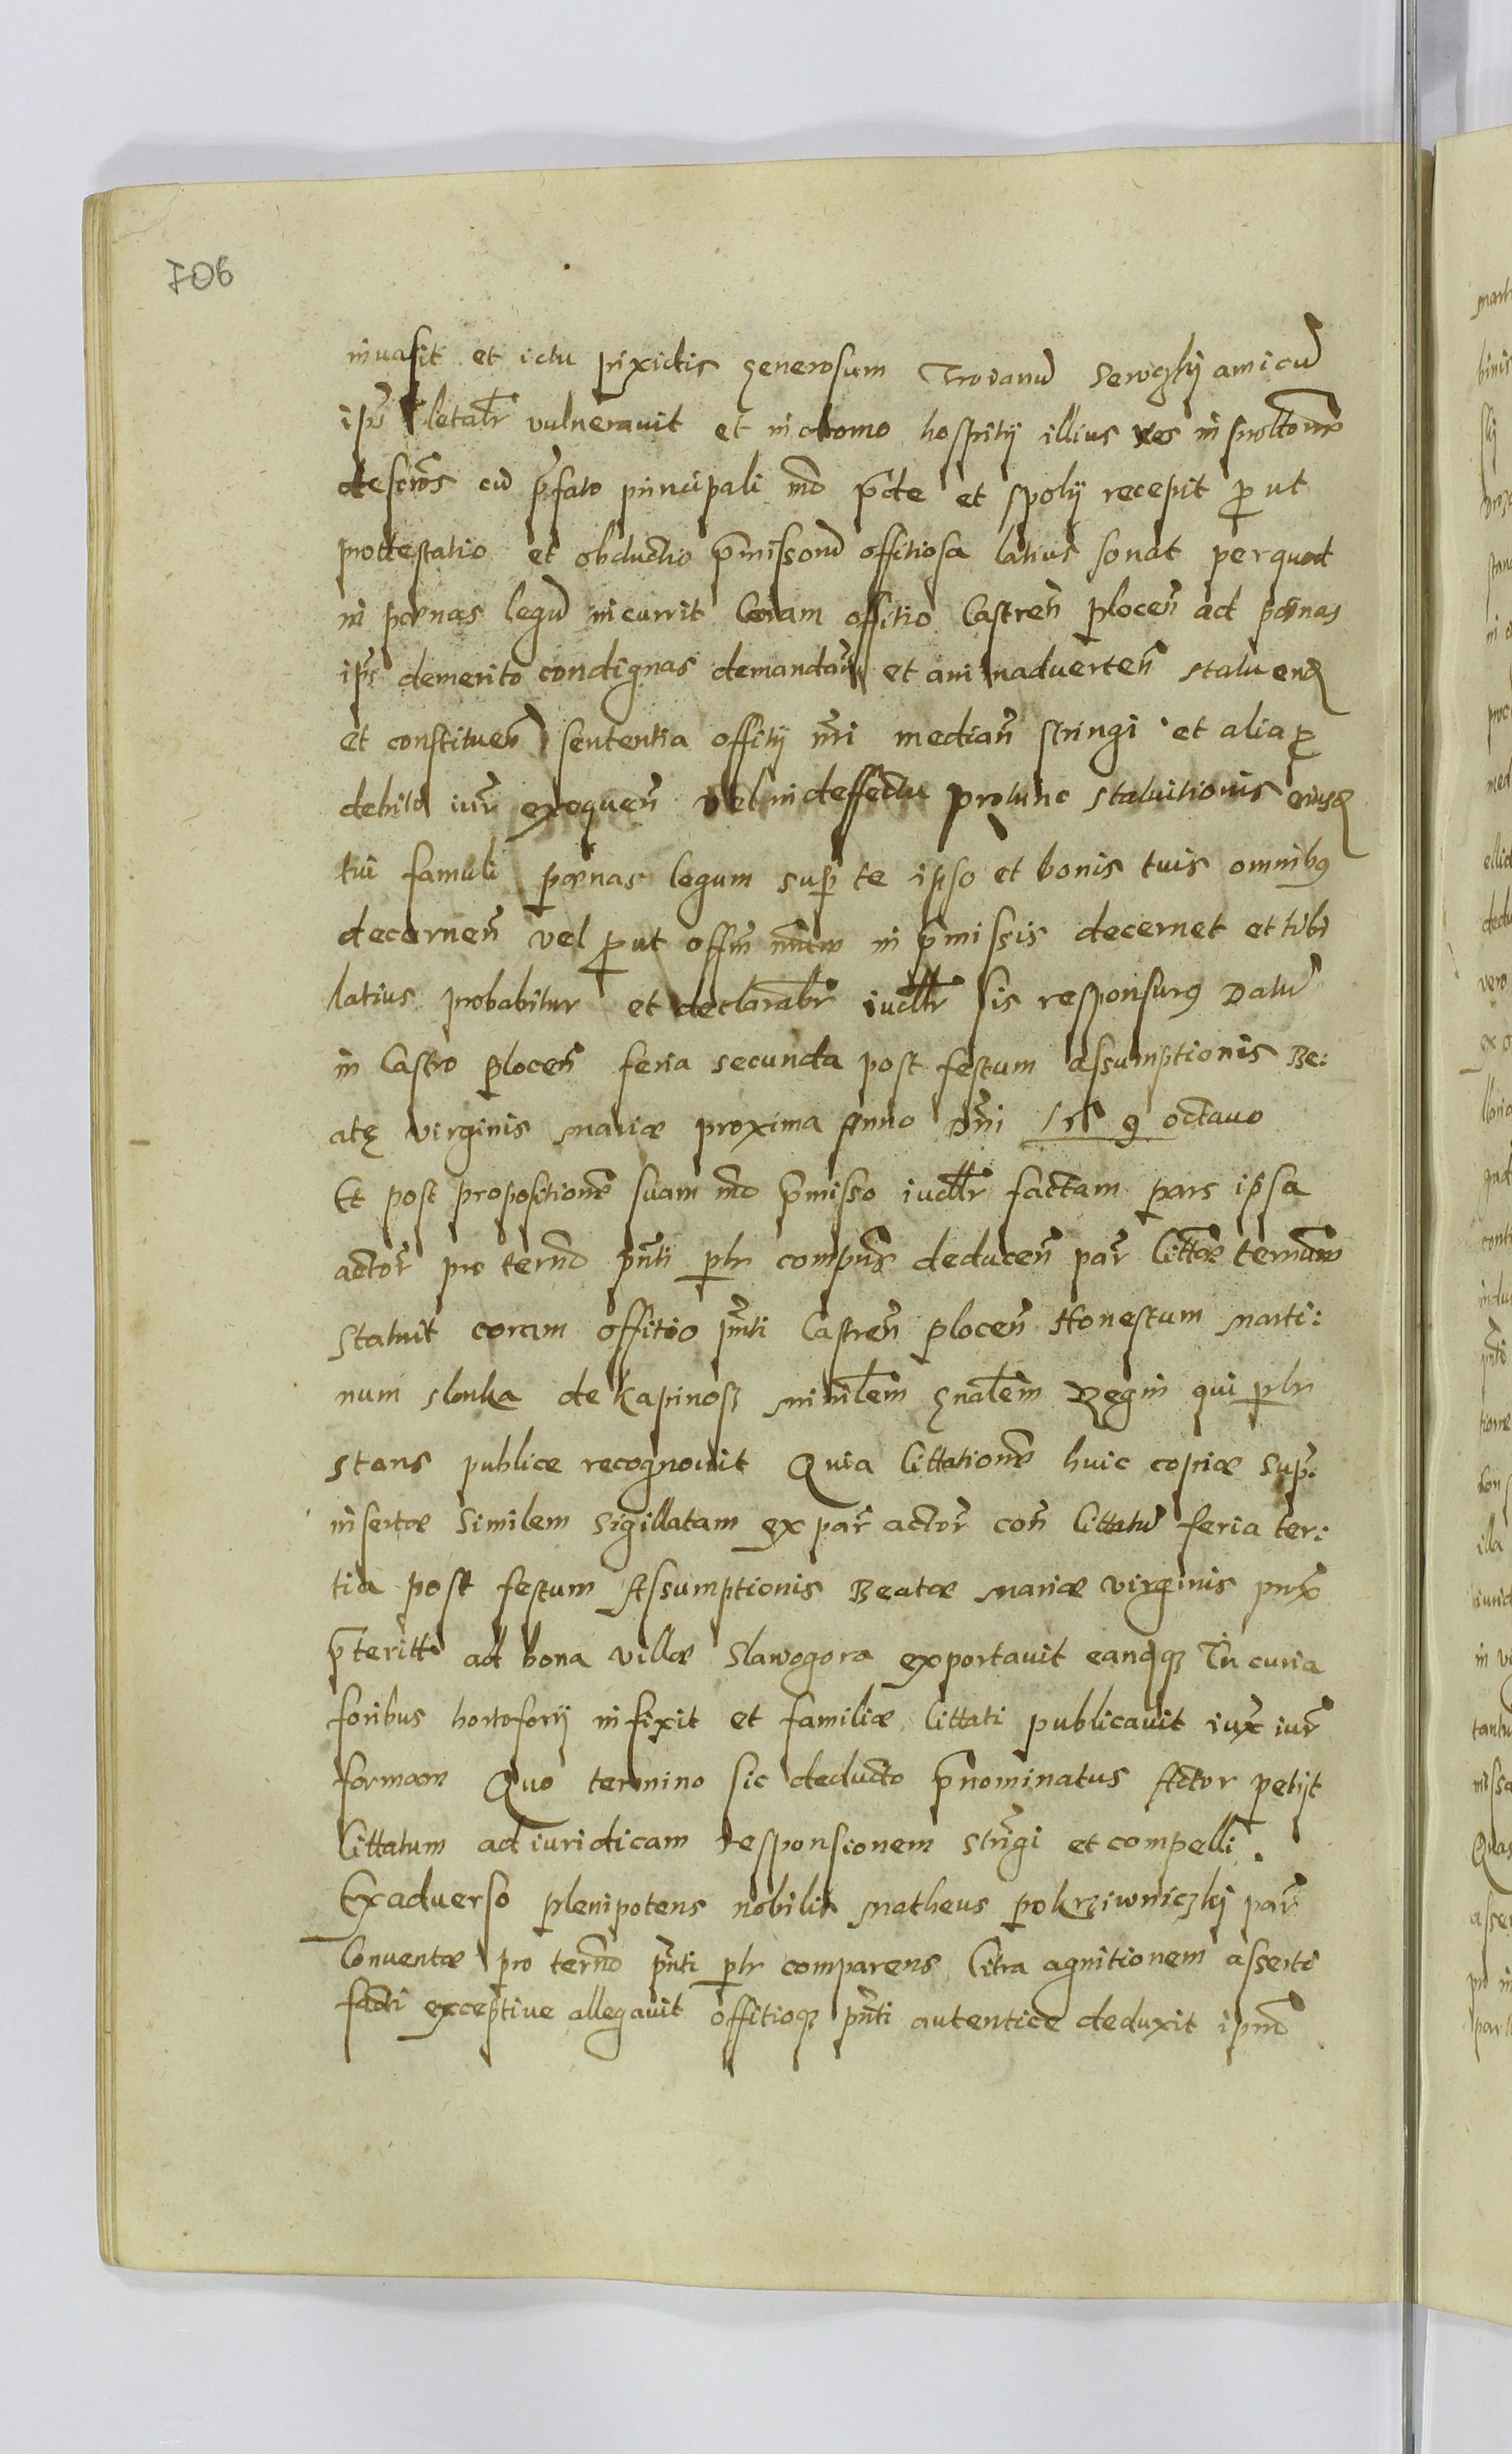 706
inuasit et ictu pixidis generosum Troianũ Serczkj amicũ
ips letalr̃ vulnerauit et in domo hospitij illius res in
descr̃os cũ p̃fato principali mõ p̃de et spolij recepit ꝓ ut
prottestatio et obductio p̃missorũ offitiosa latius sonat per quod
in pœnas legũ incurrit Coram offitio Castren̄ plocen̄ ad pœnas
ips̃ demerito condignas demandan̄ et animaduerten̄ statuend̃
et constituen̄ sententia offitij nr̃i median̄ stringi et alia ꝓ
debito iur̃ exequen̄ vel in deffectu protunc statuitionis eiusd̃
tui famuli pœnas legum sup̃ te ipso et bonis tuis omnibꝰ
decernen̄ vel ꝓ ut offm̃ nr̃um in p̃missis decernet et tibi
latius probabitur et declarabr̃ iudllr̃ sis responsurꝰ Datũ
in Castro plocen̄ feria secunda post festum assumptionis Be:
atę virginis Mariæ proxima Anno Dñi 15 9 octauo
Et post propositionẽ suam mõ p̃misso iudllr̃ factam pars ipsa
actor̃ pro termõ pñti plr compñs deducen̄ par̃ littæ terminum
statuit coram offitio pñti Castren̄ plocen̄ Honestum Marti:
num slonka de Kapinosz ministl̃em gñalem Regni qui plr
stans publice recognouit Quia Cittationẽ huic copiæ sup̃:
insertæ similem sigillatam ex par̃ actor̃ con̄ Cittatũ feria ter:
tia post festum Assumptionis Beatæ Mariæ virginis prox̃
p̃teritt ad bona villæ Slawogora exportauit eandqꝫ In curia
foribus hortoforij infixit et familiæ Cittati publicauit iux̃ iur̃
formam Quo termino sic deducto p̃nominatus Actor petijt
Cittatum ad iuridicam responsionem strĩgi et compelli.
Ex aduerso plenipotens nobilis Matheus pokrziwniczkj par̃
Conuentæ pro termõ pñti plr comparens Citra agnitionem asserti
facti exceptiue allegauit offitioqꝫ pñti autentice deduxit ipmũ